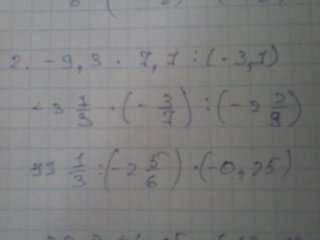 2. -9,3 · 7,7 : (-3,1)
-3 1/3 · (-3/7) : (-2 2/9)
33 1/3 : (-2 5/6) · (-0,25)